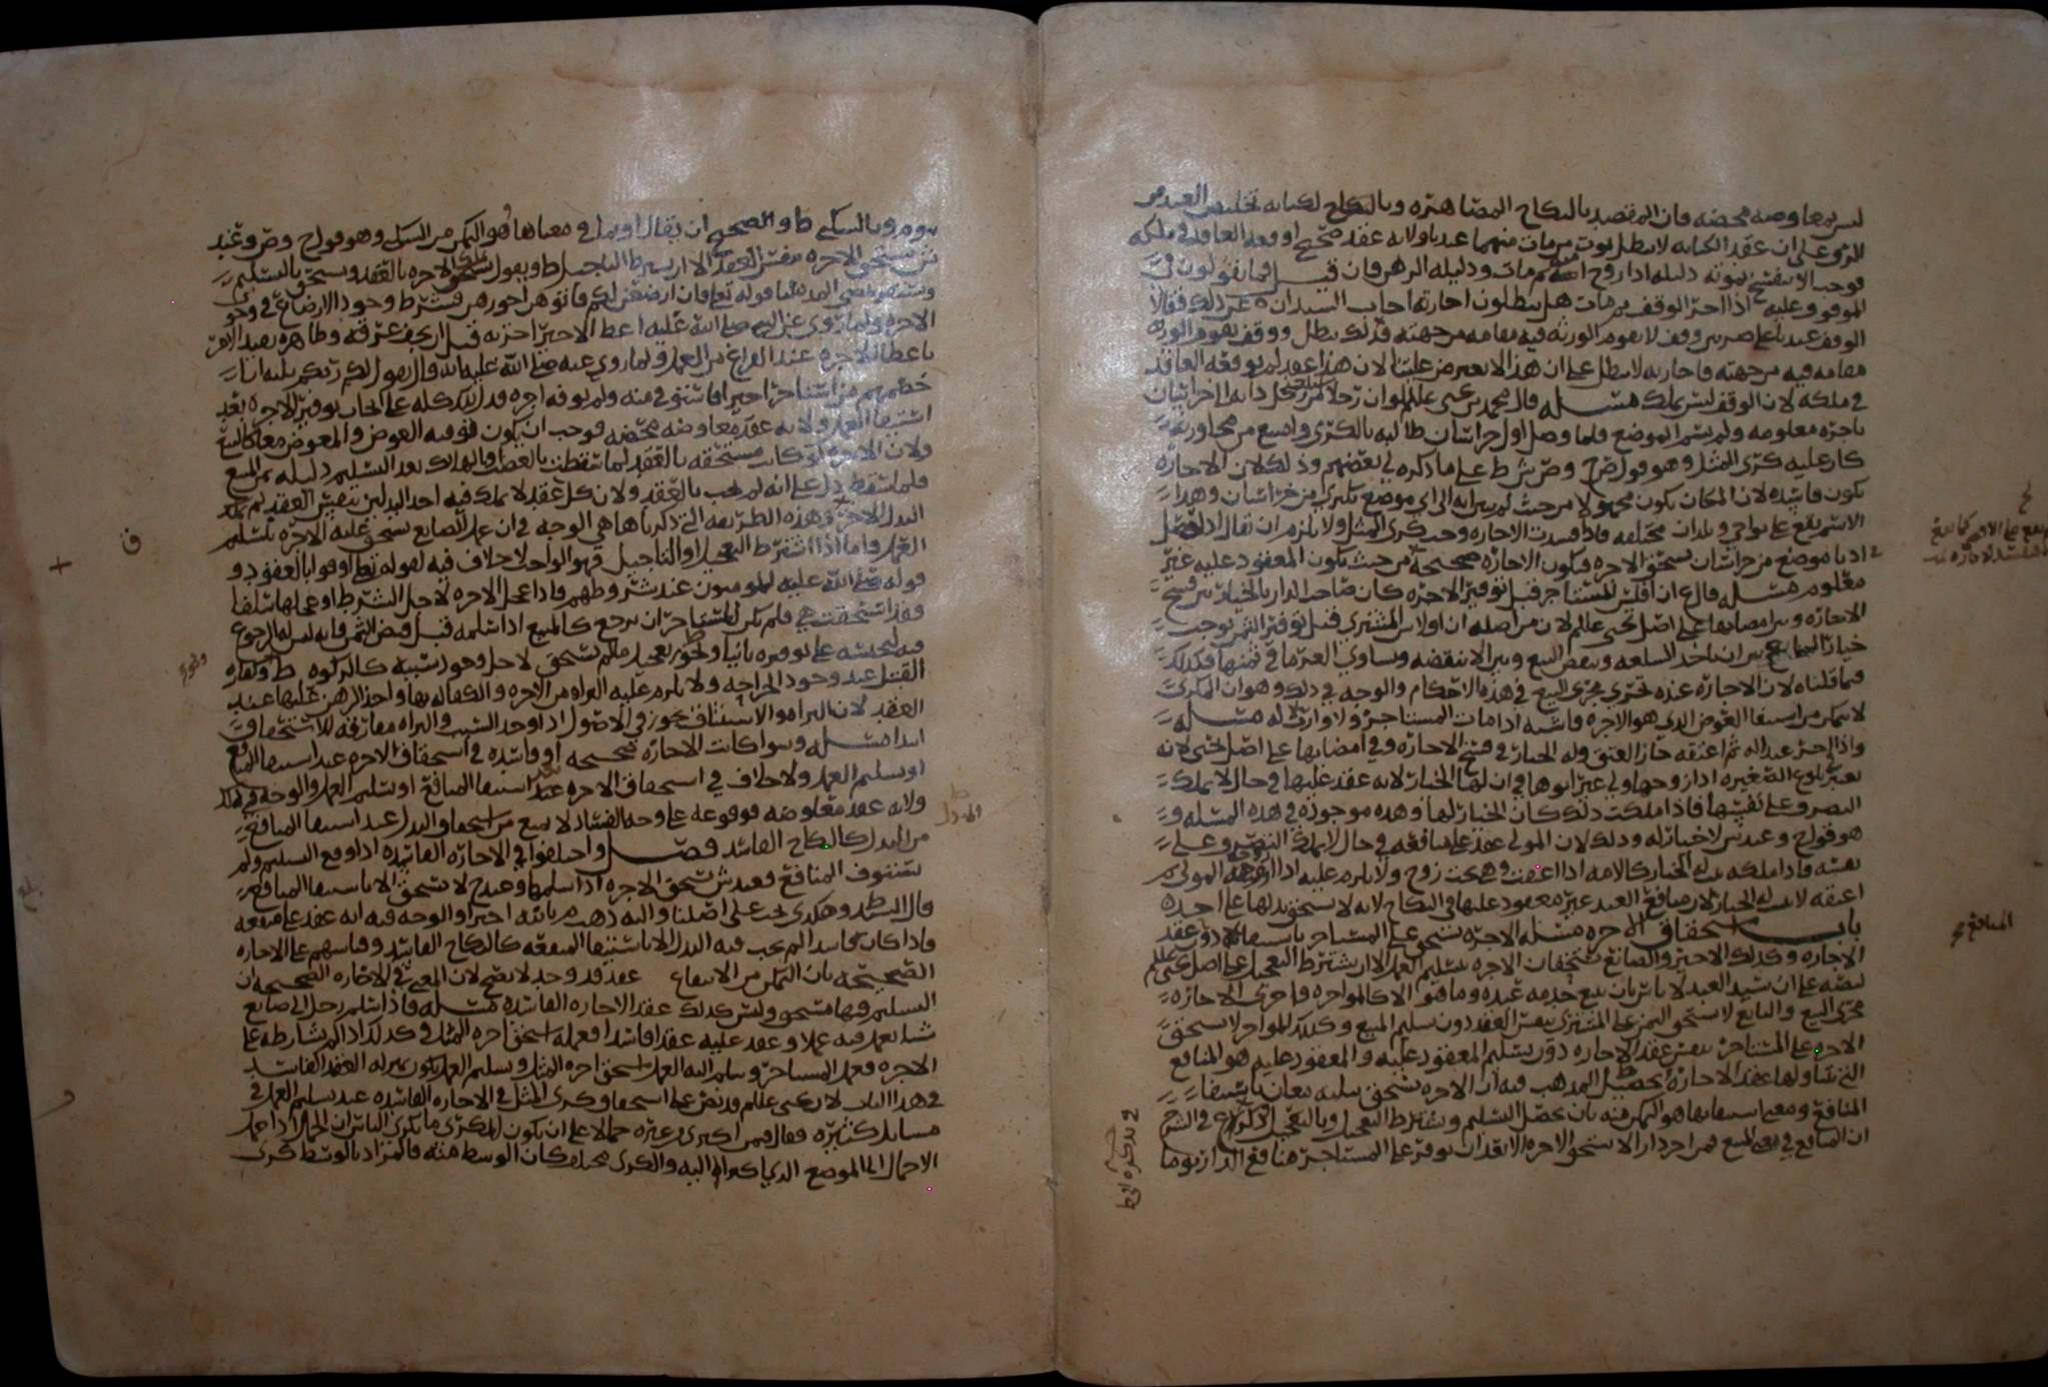 ليس بمعاوضه محضه فان المقصد بالنكاح المصاهره وبالكتابه تخليص العبد من
الرق وعلى ان عقد الكتابه لا يبطل بموت من مات منهما عندنا ولانه عقد صحيح اوقعه العاقد في ملكه
فوجب الا ينفسخ بموته دليله اذا زوج امته ثم مات ودليله الرهن فان قيل فما تقولون في
الموقوف عليه اذا اجر الوقف ثم مات هل يبطلون اجارته اجاب السيدان عن ذلك فقالا
الوقف عندنا على ضربين وقف لا يقوم الورثه فيه مقامه من جهته فذلك يبطل ووقف يقوم الورثه
مقامه فيه من جهته فاجارته لا تبطل على ان هذا لا يعترض علينا لان هذا عقد لم يوقعه العاقد
في ملكه لان الوقف ليس بملك مسئله قال محمد بن يحيى عليلم لو ان رجلا من رجل دابه الى خراسان
باجره معلومه ولم يسم الموضع فلما وصل اول خراسان طالبه بالكرى وامتنع من مجاوزته
كان عليه كرى المثل وهو قول ح وص ش ط على ما ذكره لي بعضهم وذلك لان الاجاره
تكون فاسده لان المكان يكون مجهولا من حيث لم يبين انه الى اي موضع يكتري من خراسان وهذا
الاسم يقع على نواحي وبلدان مختلفه فاذا فسدت الاجاره وجب كرى المثل ولا يلزم ان يقال اذا وصل
ادنا موضع من خراسان يستحق الاجره وتكون الاجاره صحيحه من حيث يكون المعقود عليه غير
معلوم مسئله قال ع ان افلس المستاجر قبل توفير الاجره كان صاحب الدار بالخيار بين فسخ
الاجاره وبين امضايها على اصل يحيى عليلم لان من اصله ان افلاس المشتري قبل توفير الثمن يوجب
خيار البايع بين ان ياخذ السلعه وينقض البيع وبين الا ينقضه ويساوي الغرما في ثمنها فكذلك
فيما قلناه لان الاجاره عنده تجري مجرى البيع في هذه الاحكام والوجه في ذلك هو ان المكري
لا يتمكن من استيفا العوض الذي هو الاجره فاشبه اذا مات المستاجر ولا وارث له مسئله
واذا اجر عبدا له ثم اعتقه جاز العتق وله الخيار في فسخ الاجاره وفي امضايها على اصل يحيى لانه
يعتبر بلوغ الصغيره اذا زوجها ولي غير ابوها في ان لها الخيار لانه عقد عليها في حال لا يملك
التصرف على نفسها فاذا ملكت ذلك كان الخيار لها وهذه موجوده في هذه المسئله و
هو قول ح وعند ش لا خيار له وذلك لان المولى عقد على منافعه في حال لا يملك التصرف على
نفسه فاذا ملكه ثبت له الخيار كالامه اذا اعتقت وهي تحت زوج ولا يلزم عليه اذا زوجه المولى ثم
اعتقه لا يثبت له الخيار لان منافع العبد غير معقود عليها في النكاح لانه لا يستحق بدلها على احد
باب استحقاق الاجره مسئله الاجره تستحق على المستاجر باستيفا المنافع دون عقد
الاجاره وكذلك الاجير والصانع يستحقان الاجره بتسليم العمل الا ان يشترط التعجيل على اصل يحيى عليلم
لنصه على ان سيد العبد لا باس بان يبيع خدمه عبده وما هو الا كالمواجره فاجرى الاجاره
مجرى البيع والبايع لا يستحق الثمن على المشتري بنفس العقد دون تسليم المبيع وكذلك المواجر لا يستحق
الاجره على المستاجر بنفس عقد الاجاره دون تسليم المعقود عليه والمعقود عليه هو المنافع
التي تناولها عقد الاجاره تحصيل المذهب فيه ان الاجره تستحق بثلثه معان باستيفا
المنافع ومعنى استيفايها هو التمكن منه بان يحصل التسليم وبشرط التعجيل وبالتعجيل ذكره ع في الشرح
ان المنافع في يد المبيع فمن اجر دارا لا يستحق الاجره الا بعد ان يوفر على المستاجر منافع الدار يوما
المنافع صح
يوم وبالسكنى ط والصحيح ان يقال او بما في معناها وهو التمكن من السكنى وهو قول ح وص وعند
ش يستحق الاجره بنفس العقد الا ان يشترط التاجيل ط ويقول تملك الاجره بالعقد ويستحق بالتسليم
وتستقر بمضي المده لنا قوله تعالى فان ارضعن لكم فاتوهن اجورهن فشرط وجود الارضاع في وجوب
الاجره ولما روي عن النبي صلى الله عليه اعط الاجير اجرته قبل ان يجف عرقه وظاهره يفيد الامر
باعطا الاجره عند الفراغ من العمل ولما روي عنه صلى الله عليه انه قال يقول لكم ربكم ثلثه انا
خصمهم من استاجر اجيرا فاستوفى منه ولم يوفه اجره فدل ذلك كله على ايجاب توفير الاجره بعد
استيفا العمل ولانه عقد معاوضه محضه فوجب ان يكون توفيه العوض والمعوض معا كالبيع
ولان الاجره لو كانت مستحقه بالعقد لما سقطت بالغصب والهلاك بعد التسليم دليله ثمن المبيع
فلما سقط دل على انه لم يجب بالعقد ولان كل عقد لا يملك فيه احد البدلين بنفس العقد لم يملك
البدل الاخر وهذه الطريقه التي ذكرناها هي الوجه في ان عمل الصانع تستحق عليه الاجره بتسليم
العمل واما اذا اشترط التعجيل او التاجيل فهو الواجب لا خلاف فيه لقوله تعالى اوفوا بالعقود و
قوله صلى الله عليه المومنون عند شروطهم فاذا عجل الاجره لاجل الشرط او عجلها سلفا
فقد استحقت هي فلم يكن للمستاجر ان يرجع كالمبيع اذا سلمه قبل قبض الثمن فانه ليس له الرجوع
فيه لحبسه على توفيره ثانيا ويجوز تعجيل ما لم يستحق لاجل وجود سببه كالزكوه ط وكفاره
القتل عند وجود الجراحه ولا يلزم عليه البراه من الاجره والكفاله بها واخذ الرهن عليها عند
العقد لان البراه والاستيثاق يجوز في الاصول اذا وجد السبب والبراه مفارقه للاستحقاق
ابدا مسئله وسوا كانت الاجاره صحيحه او فاسده في استحقاق الاجره عند استيفا المنافع
او تسليم العمل ولا خلاف في استحقاق الاجره عند استيفا المنافع او تسليم العمل والوجه في ذلك
ولانه عقد معاوضه فوقوعه على وجه الفساد لا يمنع من استحقاق البدل عند استيفا المنافع
من البدل كالنكاح الفاسد فصل واختلفوا في الاجاره الفاسده اذا وقع التسليم ولم
تستوف المنافع فعند ش تستحق الاجره اذا سلمها وعند ح لا تستحق الا باستيفا المنافع
قال السيد ط وهكذى يجب على اصلنا واليه ذهب م بالله اخيرا والوجه فيه انه عقد على منفعه
فاذا كان فاسدا لم يجب فيه البدل الا باستيفا المنفعه كالنكاح الفاسد وقاسهم على الاجاره
الصحيحه بان التمكن من الانتفاع عقد قد وجد لا يصح لان المعنى في الاجاره الصحيحه ان
التسليم فيها مستحق وليس كذلك عقد الاجاره الفاسده مسئله فاذا سلم رجل الى صانع
شيا يعمل فيه عملا وعقد عليه عقدا فاسدا فعمله استحق اجره المثل وكذلك اذا لم يشارطه على
الاجره فعمل المستاجر وسلم اليه العمل استحق اجره المثل وتسليم العمل يكون بمنزله العقد الفاسد
في هذا الباب لان يحيى عليلم قد نص على استحقاق كرى المثل في الاجاره الفاسده عند تسليم العمل في
مسايل كثيره فقال فيمن اكترى من غيره جمالا على ان يكون المكري ما يكري الناس ان الجمال اذا حمل
الاحمال الى الموضع الذي اكتراه اليه والكرى مختلف كان الوسط منه فالمراد بالوسط كرى